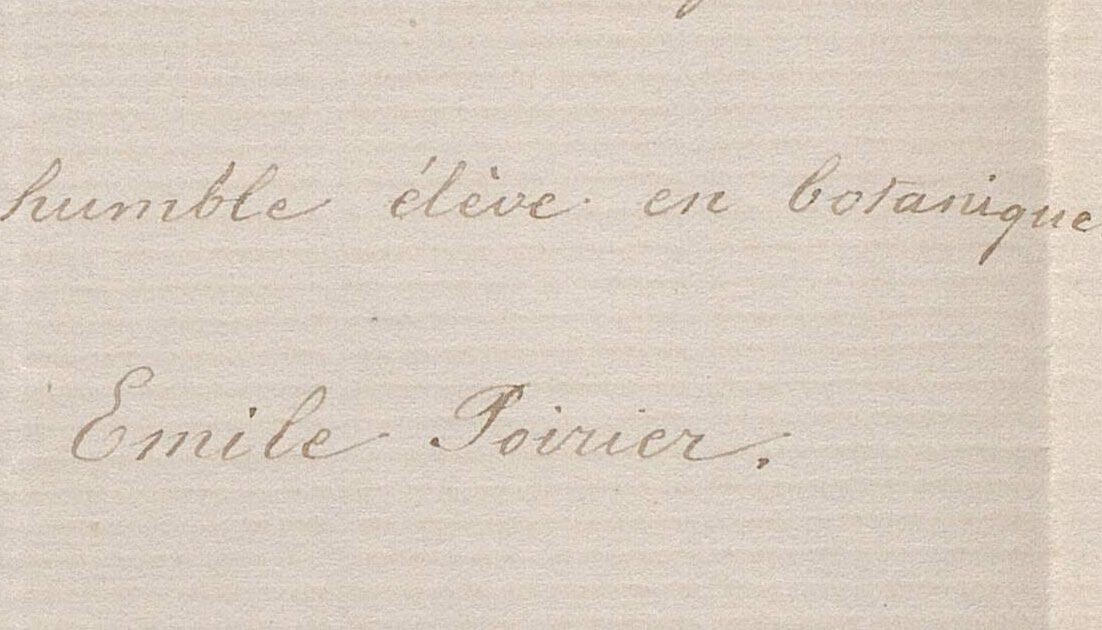 humble élève en botanique
Emile Poirier.